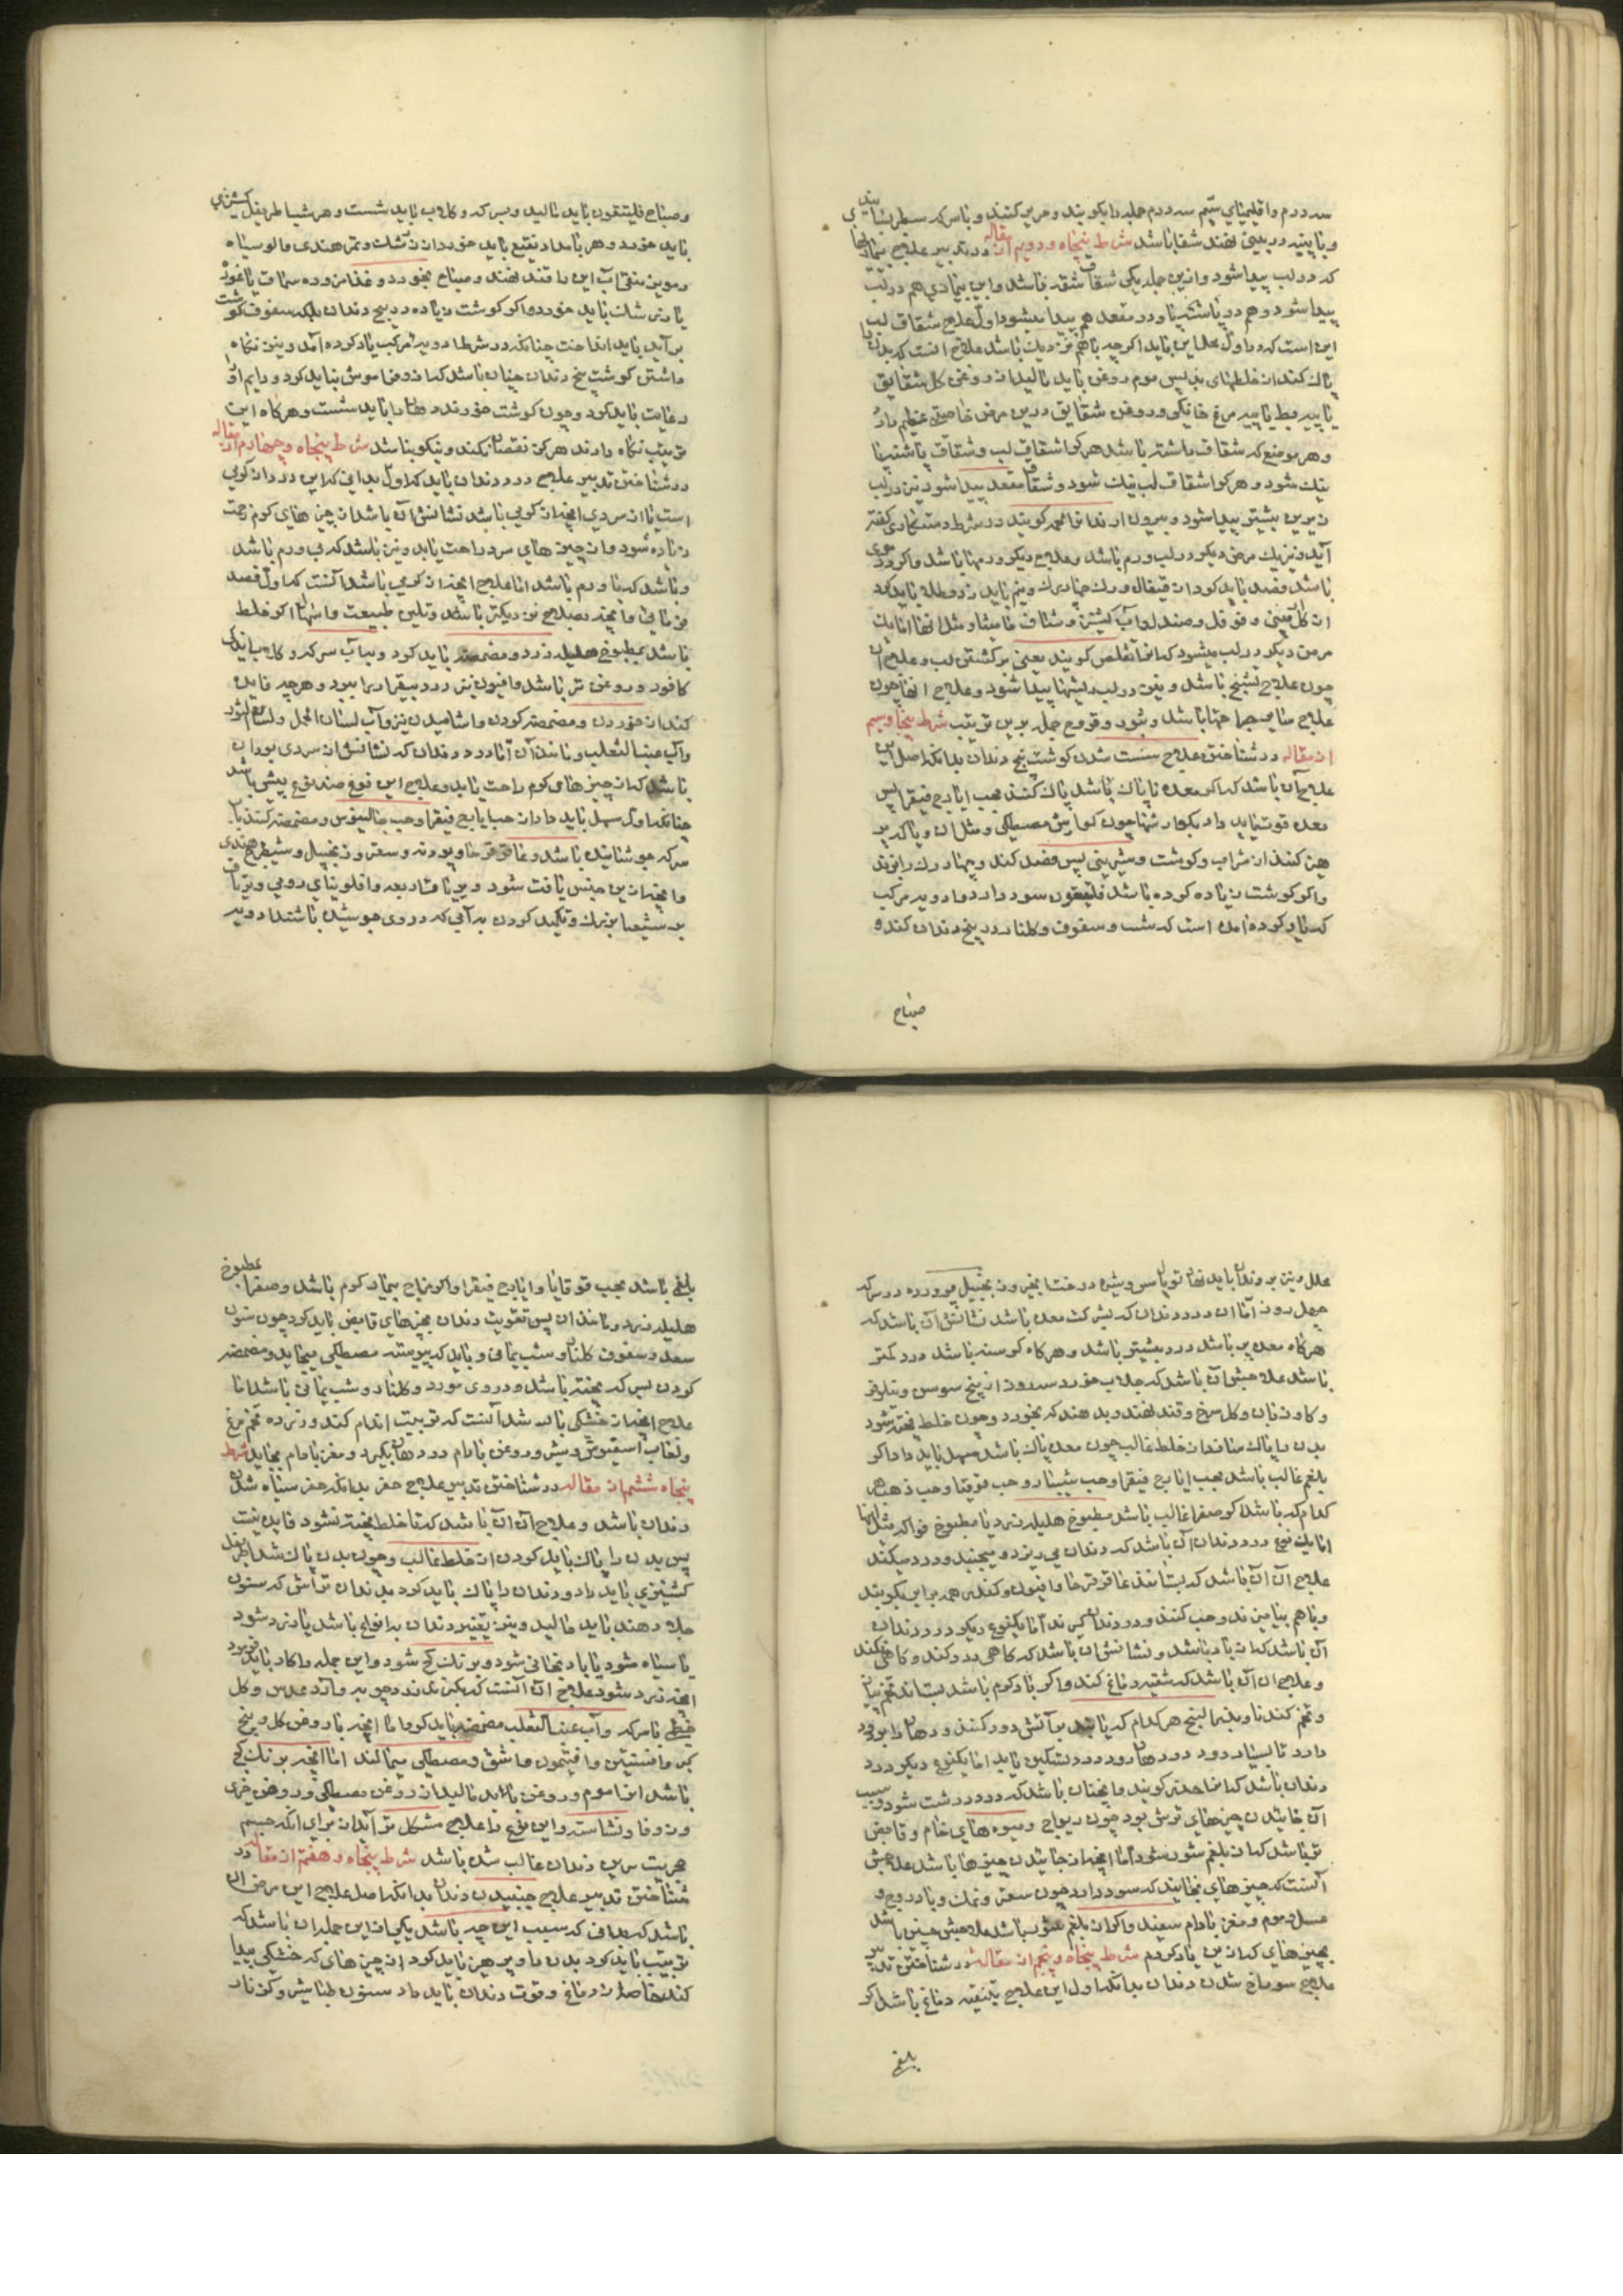 سه درم واقلیمیای سیم سه درم جمله را بکوبند و حریر کنند و با سرکه بسرشند
و با پنبه در بینی نهند شفا باشد شرط پنجاه و دویم از مقاله در تدبیر علاج بیماریها
که در لب پیدا شود و ازین جمله یکی شقاق شفه باشد و این بیماری هم در لب
پیدا شود و هم در پاشنه پا و در مقعد هم پیدا میشود اول علاج شقاق لب
این است که در اول علاین باید اگر چه باهم نزدیک باشد علاج آنست که بدن را
پاک کند از خلطهای بد پس موم روغن باید مالید از روغن گل شقایق
یا پیه بط یا پیه مرغ خانگی و روغن شقایق درین مرض خاصیتی عظیم دارد
و هر موضع که شقاق داشته باشد هر کرا شقاق لب و شقاق پاشنه پا
نیک شود و هر کرا شقاق لب نیک شود و شقاق مقعد پیدا شود نیز در لب
زیرین بیشتر پیدا شود و بیرون آرند تا همه گویند در شرط دستکاری گفته
آید و نیز یک مرض دیگر در لب ورم باشد و علاج دیگر ورمها باشد واگر دموی
باشد فصد باید کرد از قیفال و رک چهار رک و نیم باید زد و طلا باید کرد
از گل ارمنی و فوفل و صندل و آب کشنیز و شیاف مامیثا و مثل آنها اما یک
مرض دیگر در لب میشود که آنرا تقلص گویند یعنی برگشتن لب و علاج آن
چون علاج تشنج باشد و نیز در لب ریشها پیدا شود و علاج آنها چون
علاج سایر جراحتها باشد و بثور و قروح جمله برین ترتیب شرط پنجاه و سیم
از مقاله در شناختن علاج سست شدن گوشت بیخ دندان بدانکه اصل این
علاج آن باشد که اگر معده ناپاک باشد پاک کنند بحب ایارج فیقرا پس
معده قوت باید داد بگوارشها چون گوارش مصطکی و مثل آن و باید که پر
هیز کند از شراب و گوشت و شیرینی پس فصد کند و چهار رک را بزند
واگر گوشت زیاده کرده باشد فلدفیون سود دارد و ادویه مرکب
که یاد کرده آمده است که شب و سفوف و گلنار در بیخ دندان کند و
صباح
و صباح فلدفیون باید مالید و بسرکه و گلاب باید شست و هر شب اطریفل کشنیزی
باید خورد و هر بامداد نقیع باید خورد از زرشک و تمر هندی و آلو سیاه
و مویز منقی آب این را قند نهند و صباح بخورد و غذا مزوره سماق یا غوره
یا زرشک باید خورد و اگر گوشت زیاده در بیخ دندان بلکه سفوف گوشت
بر آید باید انداخت چنانکه در شرط ادویه مرکب یاد کرده آمد و نیز نگاه
داشتن گوشت بیخ دندان چنان باشد که آنرا فراموش نباید کرد و دایم او را
رعایت باید کرد و چون گوشت خورند دهان را باید شست و هرگاه این
ترتیب نگاه دارند هرگز نقصان نکند و نیکو باشد شرط پنجاه و چهارم از مقاله
در شناختن تدبیر علاج درد دندان باید که اول بدانی که این درد از گرمی
است یا از سردی آنچه از گرمی باشد نشانش آن باشد از چیزهای گرم زحمت
زیاده شود و از چیزهای سرد راحت یابد و نیز باشد که بی ورم باشد
و باشد که با ورم باشد اما علاج آنچه از گرمی باشد آنست که اول فصد
فرمائی و آنچه بصلاح نزدیکتر باشد و تلیین طبیعت و اسهال اگر خلط
باشد بمطبوخ هلیله زرد و مضمضه باید کرد و بآب سرکه و گلاب باندک
کافور و روغن تر باشد و افیون نیز درد بیقرار را ببرد و هر چه فایده
کند از خوردن و مضمضه کردن و آشامیدن نیز و آب لسان الحمل و لسان الثور
و آب عنب الثعلب و مانند آن اما درد دندان که نشانش از سردی بود آن
باشد که از چیزهای گرم راحت یابد و علاج این نوع ضد نوع پیشین باشد
چنانکه اول مسهل باید داد از حب ایارج فیقرا و حب جالینوس و مضمضه کنند با
سرکه جوشانیده باشد و عاقرقرحا و پودنه و سعتر و زنجبیل و شیطرج هندی
و آنچه ازین جنس یافت شود و بریاق اربعه و افلونیای رومی و تریاق
بر شعشا بزرگ و تکمید کردن به آبی که در وی جوشیده باشند ادویه
محلل و نیز بر دندان باید نهان تو پاس و شیره درخت انجیر و زنجبیل پرورده در سرکه
چهل روز اما آن درد دندان که بشرکت معده باشد نشانش آن باشد که
هرگاه معده پر باشد درد بیشتر باشد و هرگاه گرسنه باشد درد کمتر
باشد علاجش آن باشد که جلاب خورد سه روز از بیخ سوسن و نیلوفر
و گاوزبان و گل سرخ و قند نهند و بدهند که بخورد و چون خلط پخته شود
بدن را پاک سازند از خلط غالب چون معده پاک باشد مسهل باید داد اگر
بلغم غالب باشد بحب ایارج فیقرا و حب شبیار و حب قوقیا و حب ذهب هر
کدام که باشد اگر صفرا غالب باشد مطبوخ هلیله زرد یا مطبوخ فواکه مثل آنها
اما یک نوع درد دندان آن باشد که دندان می ریزد و میجنبد و درد میکند
علاج آن آن باشد که بستانند عاقرقرحا و افیون و کندر همه برابر بکوبند
و باهم بیامیزند و حب کنند و در دندان گیرند اما یکنوع دیگر درد دندان
آن باشد که از باد باشد و نشانش آن باشد که گاهی درد کند و گاهی نکند
و علاج آن آن باشد که تنقیه دماغ کند و اگر باد گرم باشد بستاند تخم پیاز
و تخم گندنا و بذر البنج هر کدام که باشد بر آتش دود کنند و دهان را بر دود
دارد تا بسیار دود در دهان رود درد تسکین یابد اما یکنوع دیگر درد
دندان باشد که آنرا خدر گویند و آنچنان باشد که درد درشت شود و سبب
آن خائیدن چیزهای ترش بود چون ریواج و میوه های خام و قابض
تر باشد که از بلغم شور شود اما آنچه از خائیدن چیزها باشد علاجش
آنست که چیزهای بخایند که سود دارد چون سعتر و نمک و بادروج و
عسل و موم و مغز بادام سفید و اگر از بلغم شور باشد علاجش همین باشد
بچیزهای که ازین یاد کردم شرط پنجاه و پنجم از مقاله در شناختن تدبیر
علاج سوراخ شدن دندان بدانکه اول این علاج بتنقیه دماغ باشد اگر
بلغمی
بلغمی باشد بحب قوقایا و ایارج فیقرا و اگر مزاج بیمار گرم باشد و صفرا بمطبوخ
هلیله زرد و مانند آن پس تقویت دندان بچیزهای قابض باید کرد چون سنون
سعد و سفوف گلنار و شب یمانی و باید که پیوسته مصطکی میخاید و مضمضه
کردن بسرکه پخته باشد و در وی مورد و گلنار و شب یمانی باشد اما
علاج آنچه از خشکی باشد آنست که ترتیب اندام کند و زرده تخم مرغ
و لعاب اسفیوش و شیر و روغن بادام در دهان بگیرد و مغز بادام بخاید شرط
پنجاه ششم از مقاله در شناختن تدبیر علاج حفر بدانکه حفر سیاه شدن
دندان باشد و علاج آن آن باشد که تا خلط پخته نشود فایده نیست
پس بدن را پاک باید کردن از خلط غالب و چون بدن پاک شد اطریفل
کشنیزی باید داد و دندان را پاک باید کرد بدندان تراش که سنون
جلا دهند باید مالید و نیز تغییر دندان به انواع باشد یا زرد شود
یا سیاه شود یا بادنجانی شود و برنگ گچ شود و این جمله را کار باید فرمود
آنچه زرد شود علاج آن آنست که بگیرند زردچوبه و آرد عدس و گل
خطمی با سرکه و آب عنب الثعلب مضمضه باید کرد اما آنچه با روغن گل و بیخ
کبر و افسنتین و افتیمون و اشق و مصطکی بمالند اما آنچه برنگ گچ
باشد آنرا موم و روغن باید مالید از روغن مصطکی و روغن خیری
و زوفا و نشاسته و این نوع را علاج مشکل تر آید از برای آنکه جسم
جبریت برین دندان غالب شده باشد شرط پنجاه و هفتم از مقاله در
شناختن تدبیر علاج جنبیدن دندان بدانکه اصل علاج این مرض آن
باشد که بدانی که سبب این چه باشد یکی از این جمله آن باشد که
ترتیب باید کرد بدن را و پرهیز باید کرد از چیزهای که خشکی پیدا
کند خاصه از دماغ و قوت دندان باید داد سنون طباشیر و گزنار